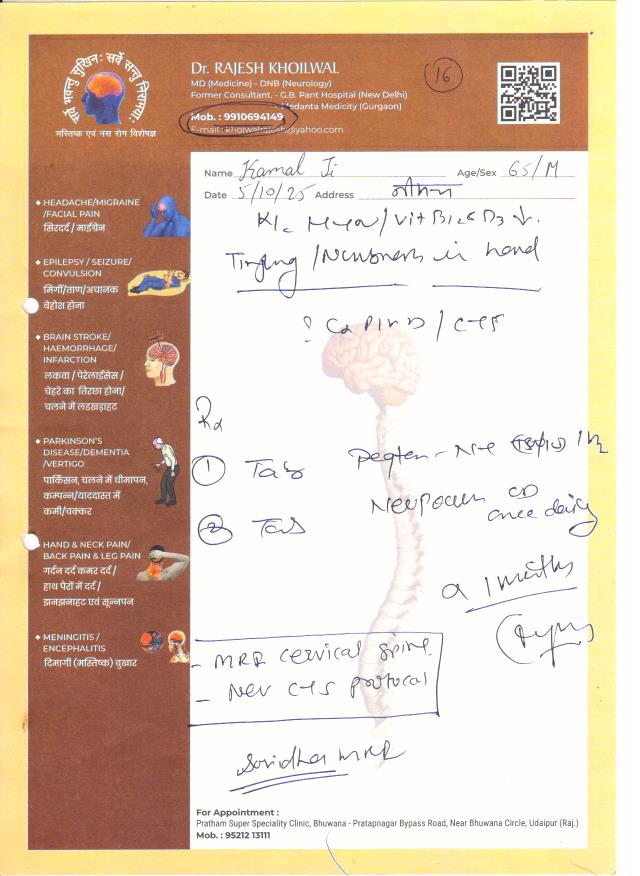 सर्वे भवन्तु सुखिनः सर्वे सन्तु निरामयाः
मस्तिष्क एवं नस रोग विशेषज्ञ
Dr. RAJESH KHOILWAL
MD (Medicine) - DNB (Neurology)
Former Consultant. - G.B. Pant Hospital (New Delhi)
- Medanta Medicity (Gurgaon)
Mob. : 9910694149
16
Name Kamal Ji Age/Sex 65/M
Date 5/10/25 Address
Vit B12 & D3 ↓
Tingling / Numbness in hand
/ CTS
Rx
① Tab
② Tab
once daily
1 month
- MRI cervical spine
- NCV CTS protocal
MRI
◆ HEADACHE/MIGRAINE
/FACIAL PAIN
सिरदर्द / माईग्रेन
◆ EPILEPSY / SEIZURE/
CONVULSION
मिर्गी/ताण/अचानक
बेहोश होना
◆ BRAIN STROKE/
HAEMORRHAGE/
INFARCTION
लकवा / पेरेलाईसेस /
चेहरे का तिरछा होना/
चलने में लडखड़ाहट
◆ PARKINSON'S
DISEASE/DEMENTIA
/VERTIGO
पार्किसन, चलने में धीमापन,
कम्पन्न/याददास्त में
कमी/चक्कर
◆ HAND & NECK PAIN/
BACK PAIN & LEG PAIN
गर्दन दर्द कमर दर्द /
हाथ पैरों में दर्द /
झनझनाहट एवं सून्नपन
◆ MENINGITIS /
ENCEPHALITIS
दिमागी (मस्तिष्क) बुखार
For Appointment :
Pratham Super Speciality Clinic, Bhuwana - Pratapnagar Bypass Road, Near Bhuwana Circle, Udaipur (Raj.)
Mob. : 95212 13111